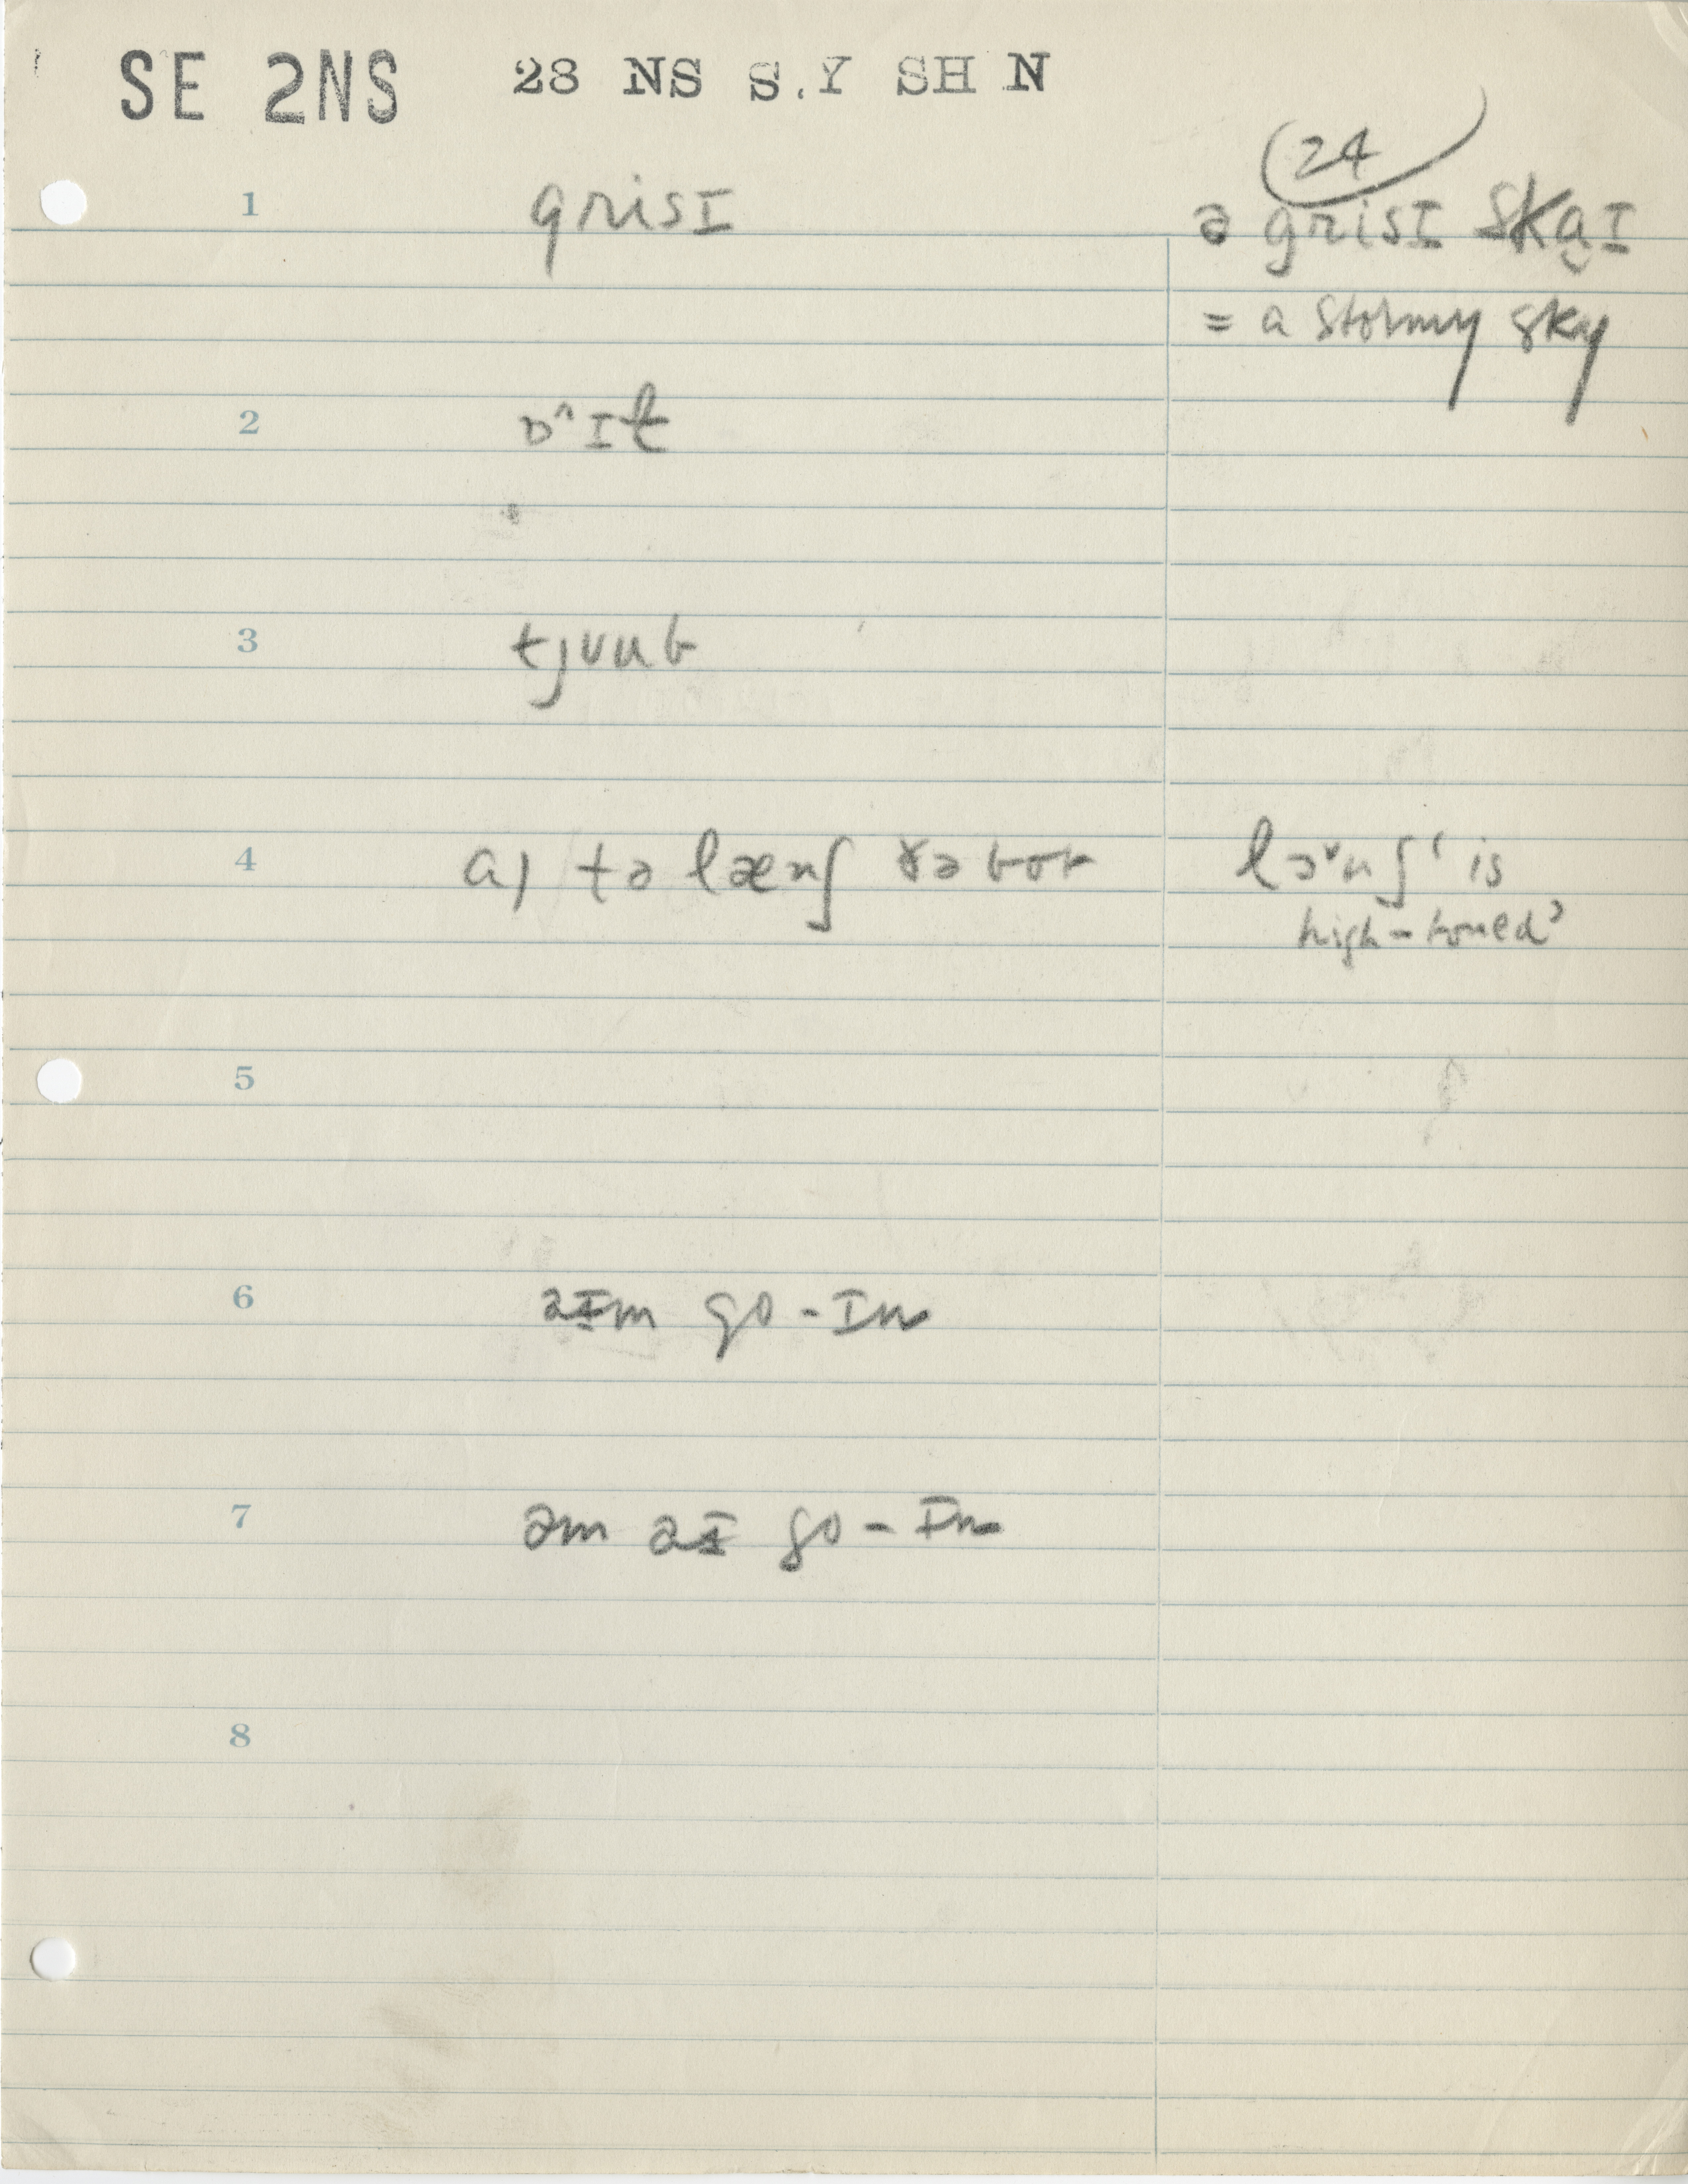 SE 2NS 28 NS S.Y SH N
24
1 grisɪ ə grisɪ skaɪ
= a stormy sky
2
3 tjuub
4 a) tə lænʃ ðə bot lɔ˅nʃ ' is
high-toned'
5
6 aɪm go-ɪn
7 əm aɪ go-ɪn
8